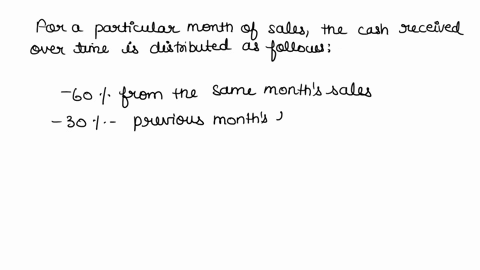 For a particular month of sales, the cash received
over time is distributed as follows:
-60% from the same month's sales
-30%- previous month's